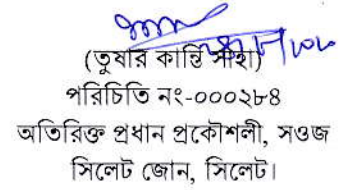 (তুষার কান্তি সাহা)
পরিচিতি নং-০০০২৮৪
অতিরিক্ত প্রধান প্রকৌশলী, সওজ
সিলেট জোন, সিলেট।